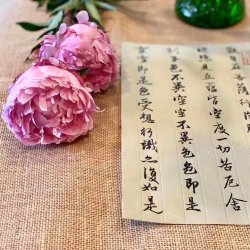 觀自在菩薩行深
時照見五蘊皆空度一切苦厄舍
利子色不異空空不異色色即是
空空即是色受想行識亦復如是